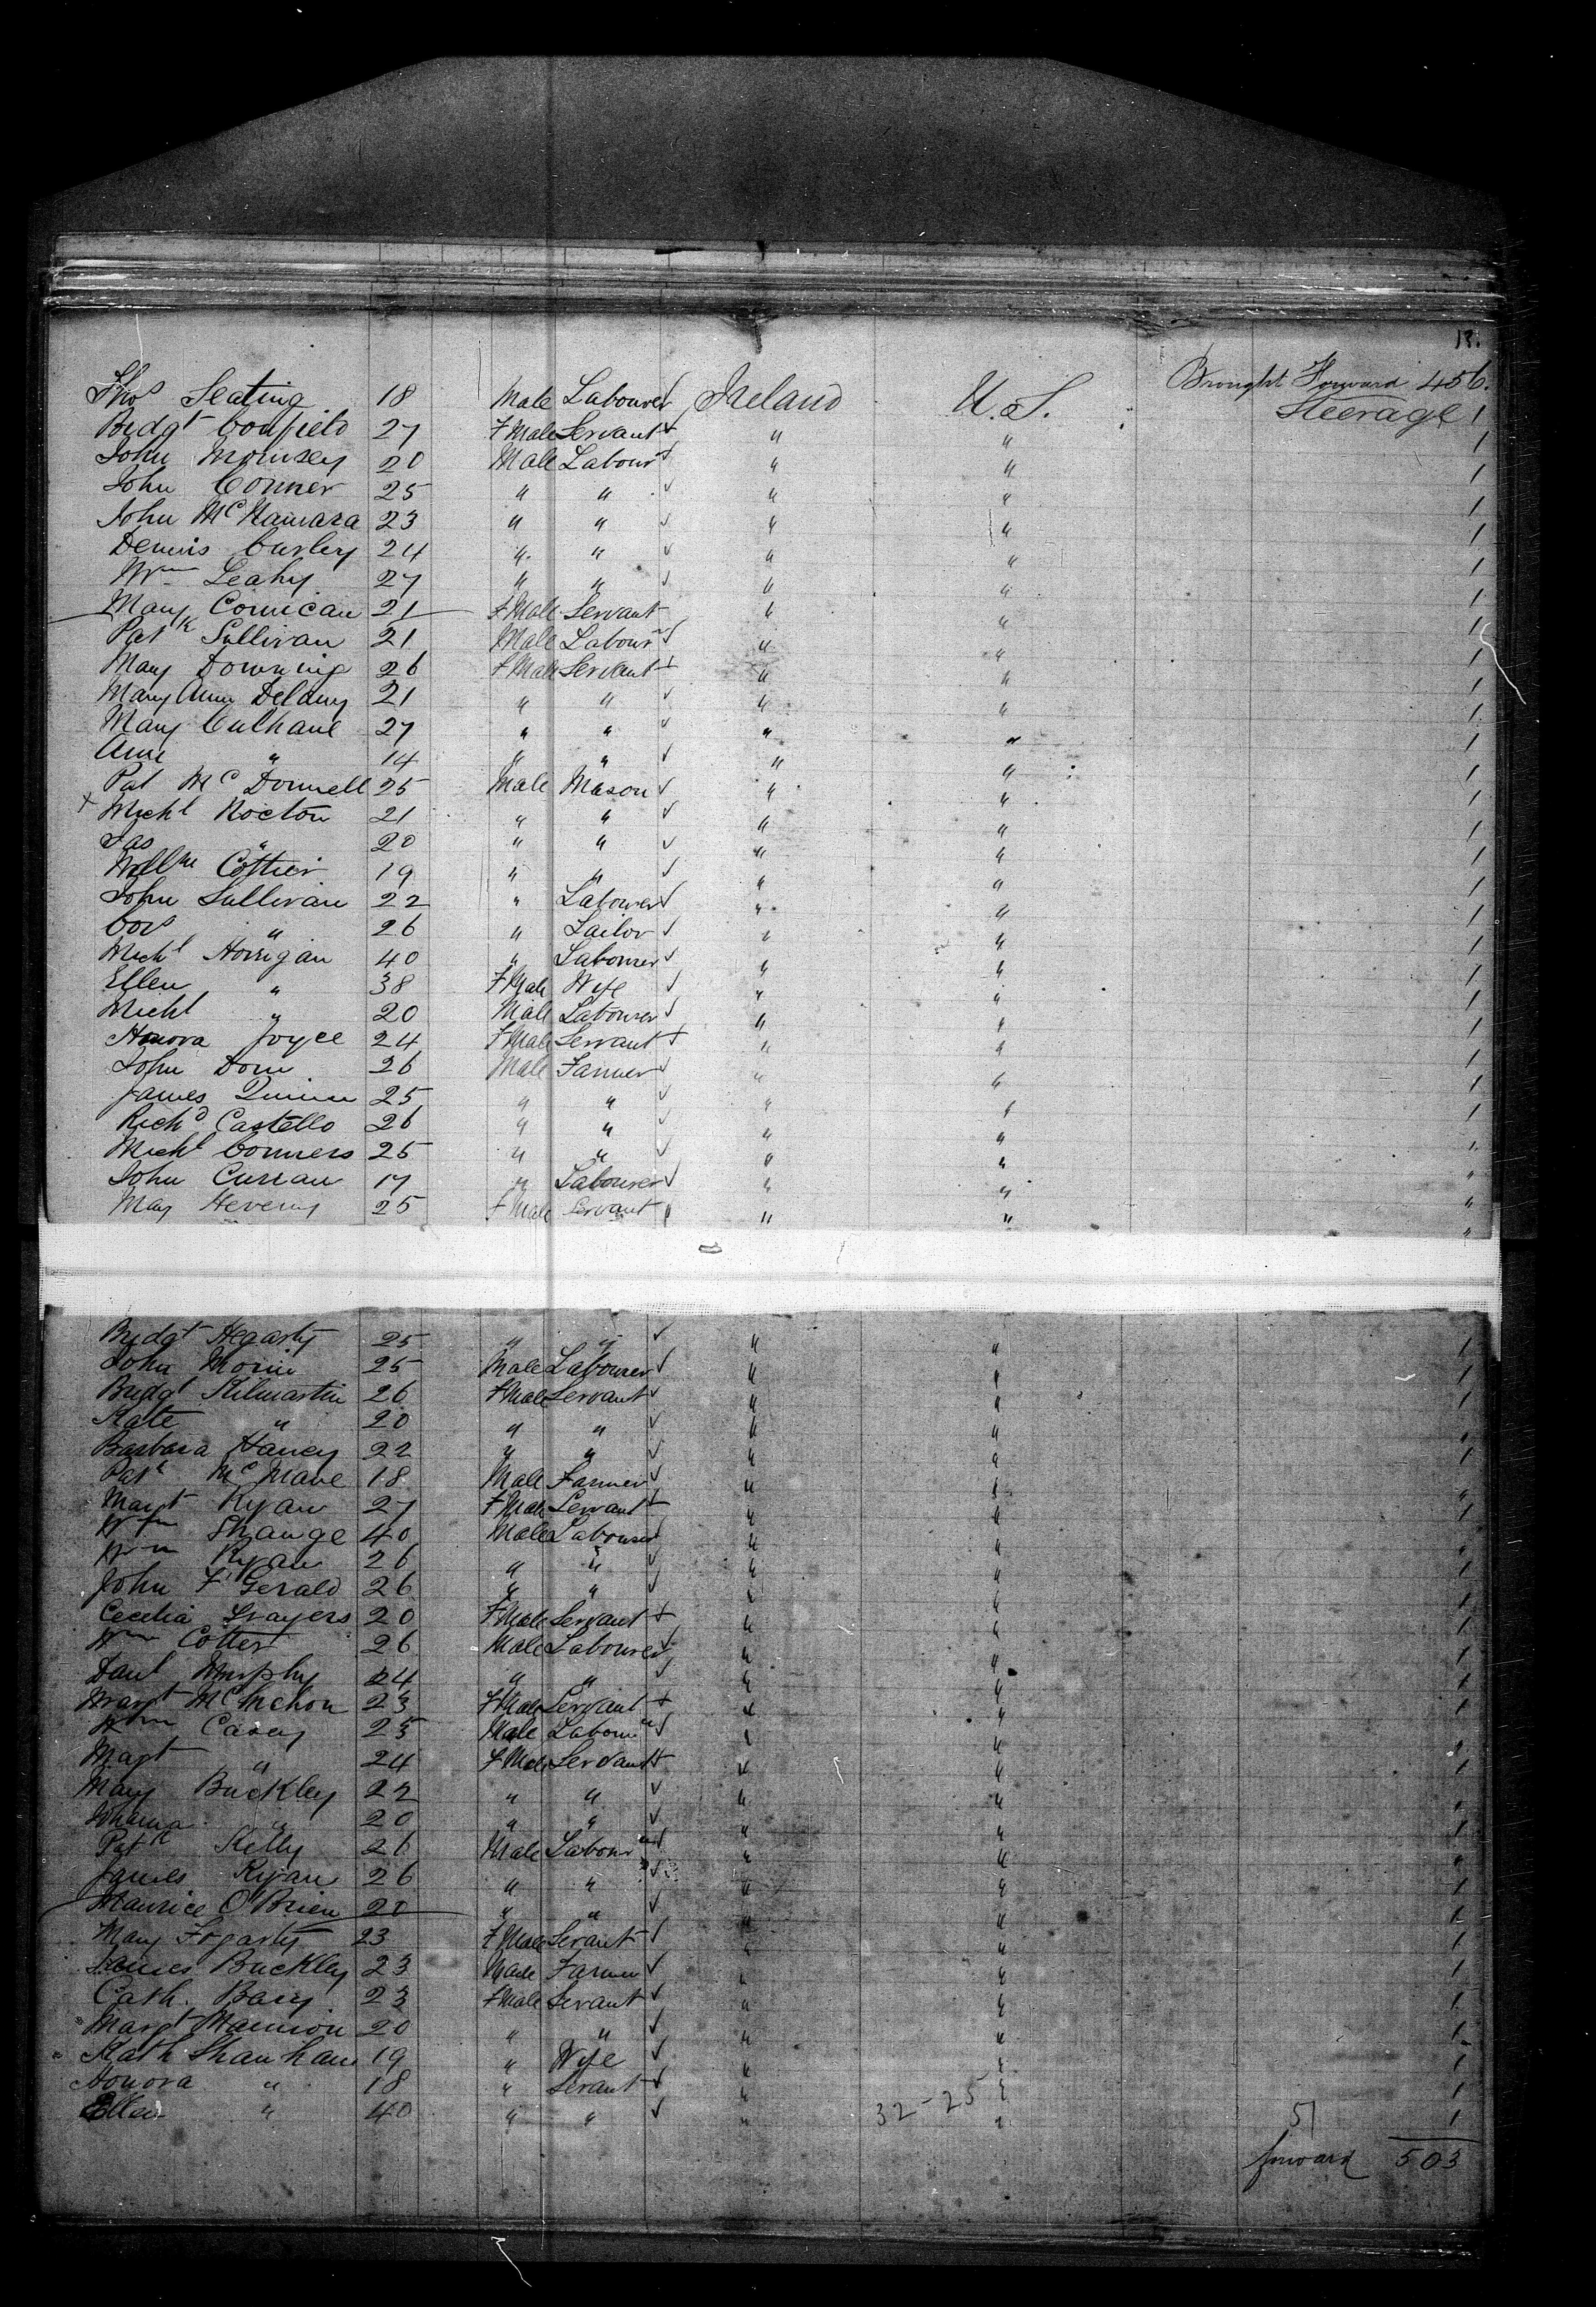 18.
Brought Forward 456.
Thos Seating 18 Male Labourer Ireland U.S. Steerage 1
Bridgt Confield 27 F Male Servant " " 1
John Morrisey 20 Male Labourr " " 1
John Conner 25 " " " " 1
John McNamara 23 " " " " 1
Dennis Curley 24 " " " " 1
Wm Leahy 27 " " " " 1
Mary Cornican 21 F Male Servant " " 1
Patk Sullivan 21 Male Labourr " " 1
Mary Downing 26 F Male Servant " " 1
Mary Ann Delany 21 " " " " 1
Mary Culhane 27 " " " " 1
Ann " 14 " " " " 1
Pat McDonnell 25 Male Mason " " 1
+ Michl Nocton 21 " " " " 1
Jas " 20 " " " " 1
Willm Cottier 19 " " " " 1
John Sullivan 22 " Labourer " " 1
Cors " 26 " Tailor " " 1
Michl Horrigan 40 " Labourer " " 1
Ellen " 38 F Male Wife " " 1
Michl " 20 Male Labourer " " 1
Honora Joyce 24 F Male Servant " " 1
John Dorn 26 Male Farmer " " 1
James Quinn 25 " " " " 1
Richd Castello 26 " " " " 1
Michl Conners 25 " " " " "
John Curran 17 " Labourer " " "
Mary Heveny 25 F Male Servant " " "
Bridgt Hegarty 25 " " " " 1
John Morin 25 Male Labourer " " 1
Bridgt Kilmartin 26 F Male Servant " " 1
Kate " 20 " " " " "
Barbara Haney 22 " " " " 1
Patk 18 Male Farmer " " "
Margt Ryan 27 F Male Servant " " 1
Wm Shange 40 Male Labourer " " "
Wm Ryan 26 " " " " 1
John F'Gerald 26 " " " " 1
Cecelia Grayers 20 F Male Servant " " 1
Wm Cotter 26 Male Labourer " " 1
Danl Murphy 24 " " " " 1
Margt McMehon 23 F Male Servant " " 1
Wm Casey 25 Male Labourr " " "
Magt " 24 F Male Servant " " 1
Mary Buckley 22 " " " " "
Johanna " 20 " " " " 1
Patk Kelly 26 Male Labourr " " "
James Ryan 26 " " " " 1
Maurice O'Brien 20 " " " " 1
Mary Fogarty 23 F Male Servant " " 1
James Buckley 23 Male Farmer " " 1
Cath. Barry 23 F Male Servant " " 1
Margt Mannion 20 " " " " 1
Kath Shanhan 19 " Wife " " 1
Honora " 18 " Servant " " 1
Ellen " 40 " " " 32-25 " 51 1
forward 503